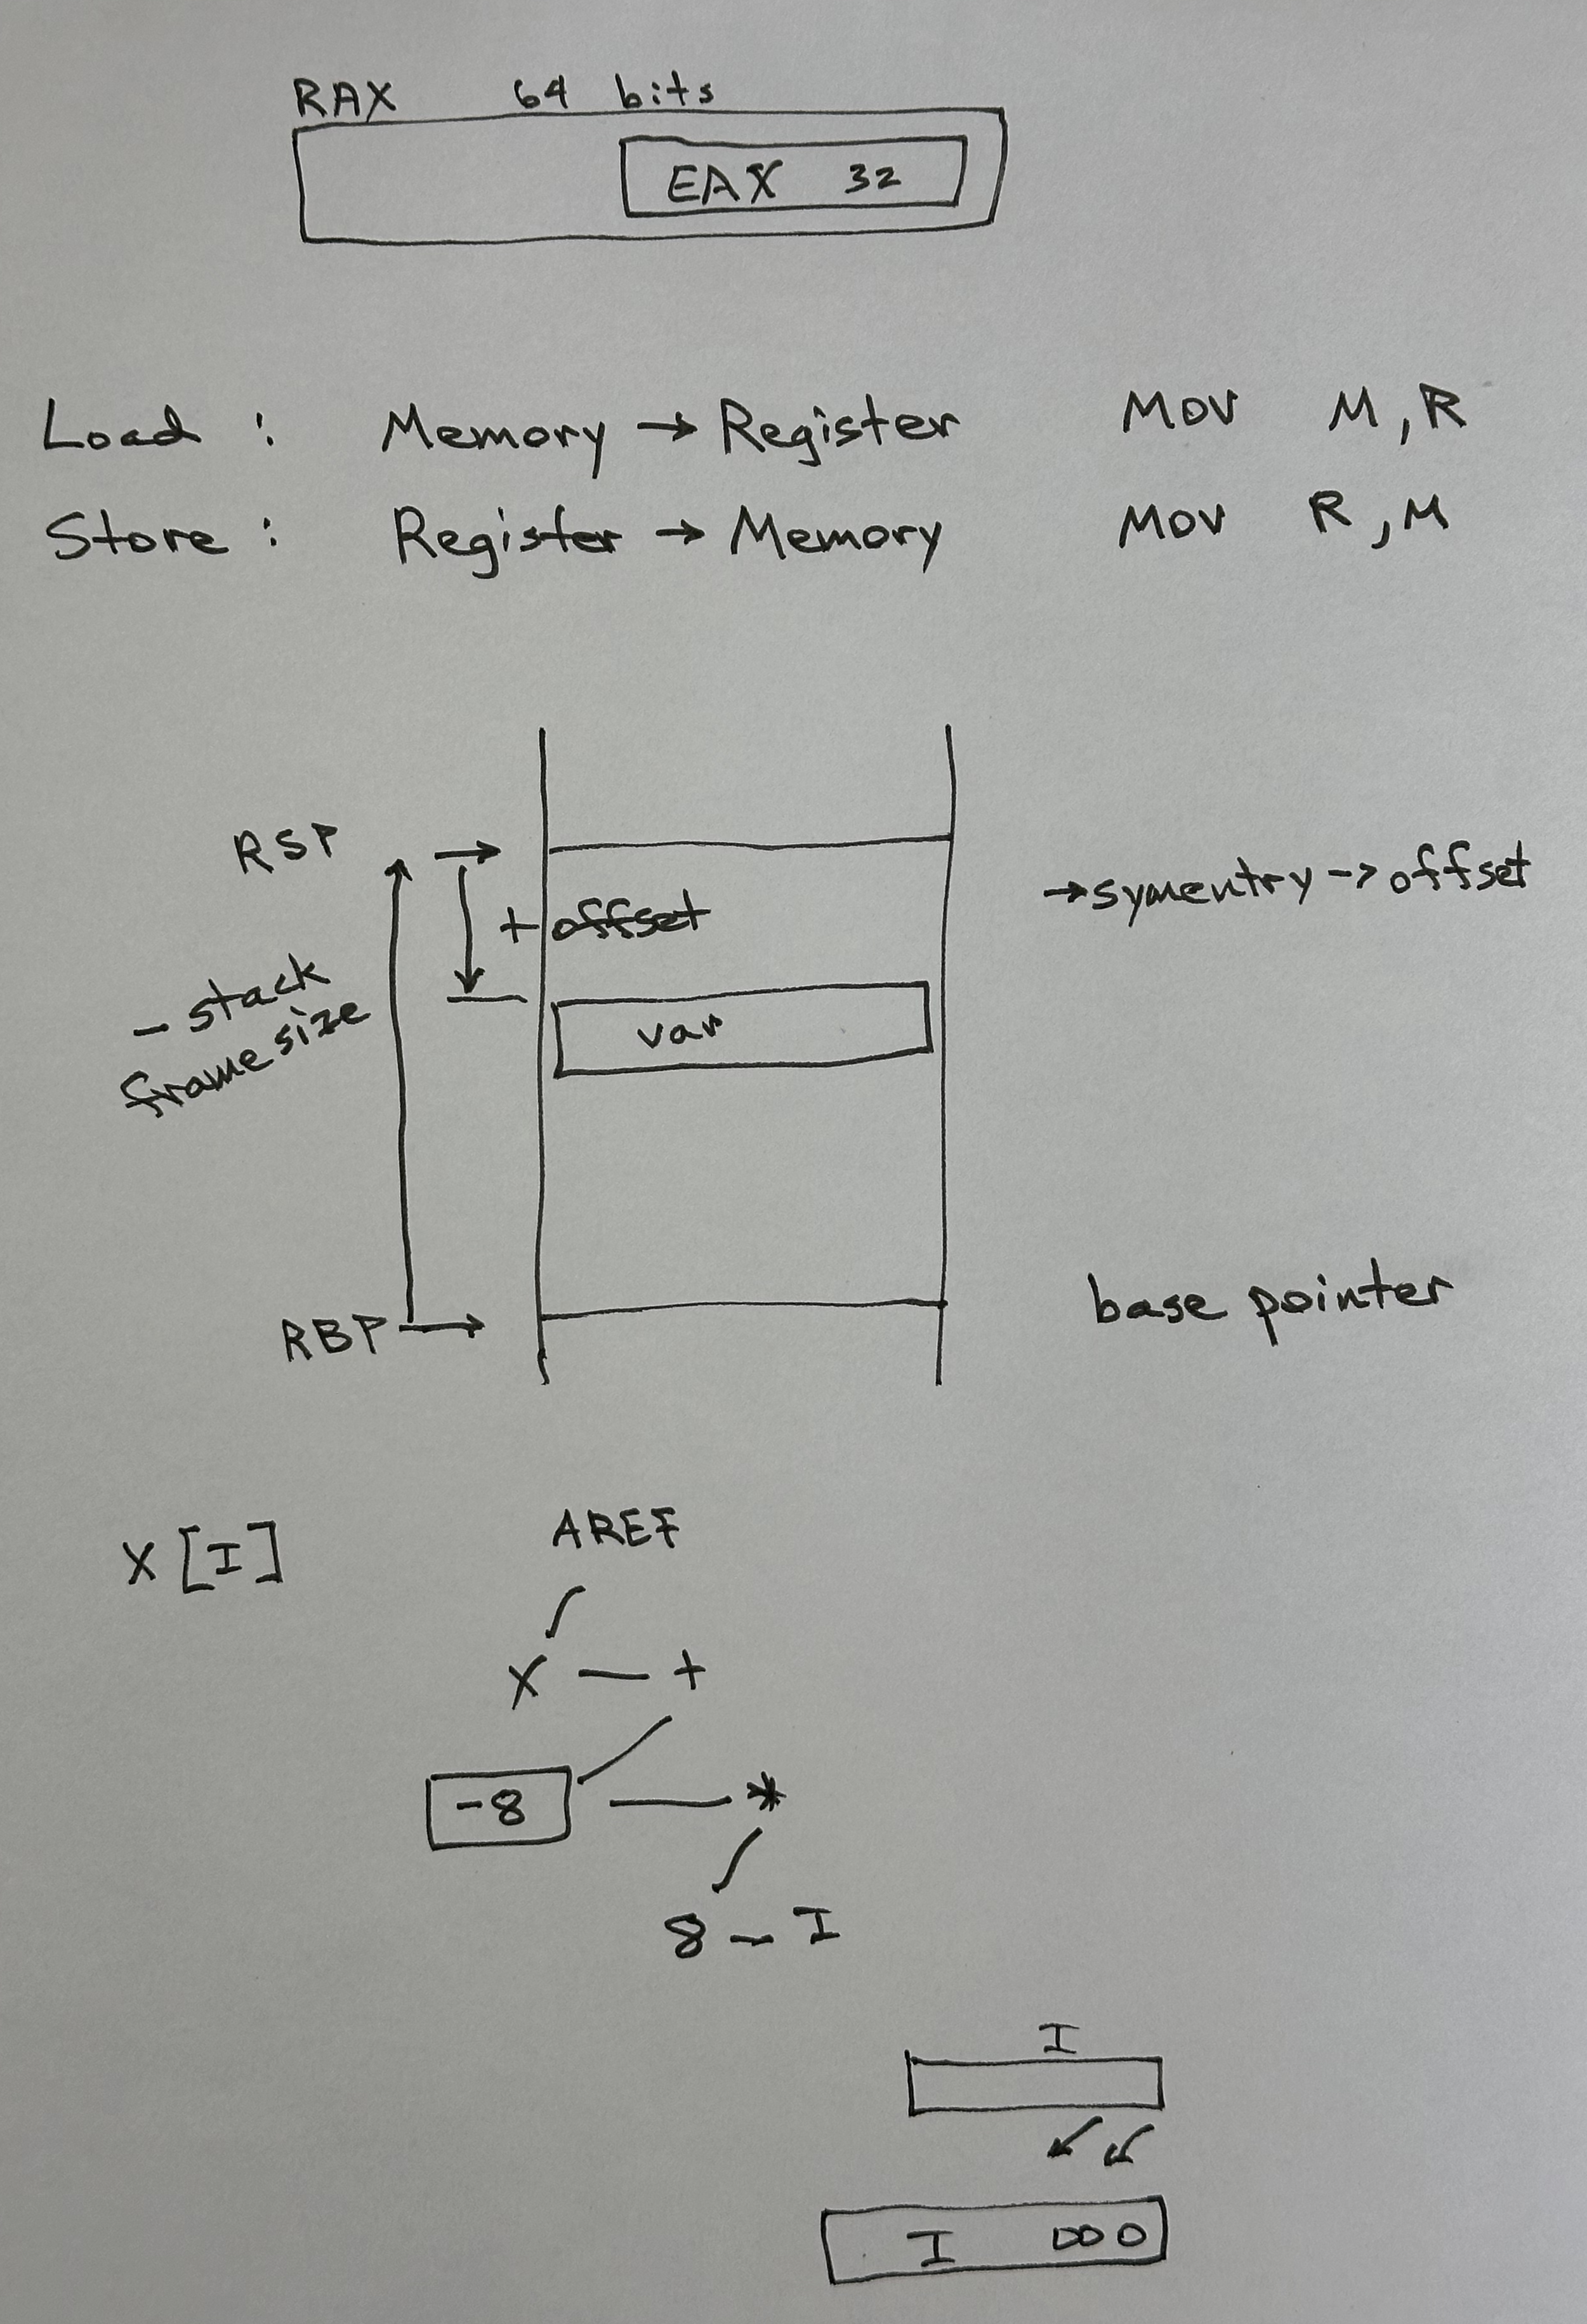 RAX 64 bits
EAX 32
Load : Memory → Register MOV M,R
Store : Register → Memory MOV R,M
RSP
→ symentry -> offset
+ offset
- stack
frame size
var
RBP
base pointer
X [I]
AREF
X — +
-8 — *
8 - I
I
I 000